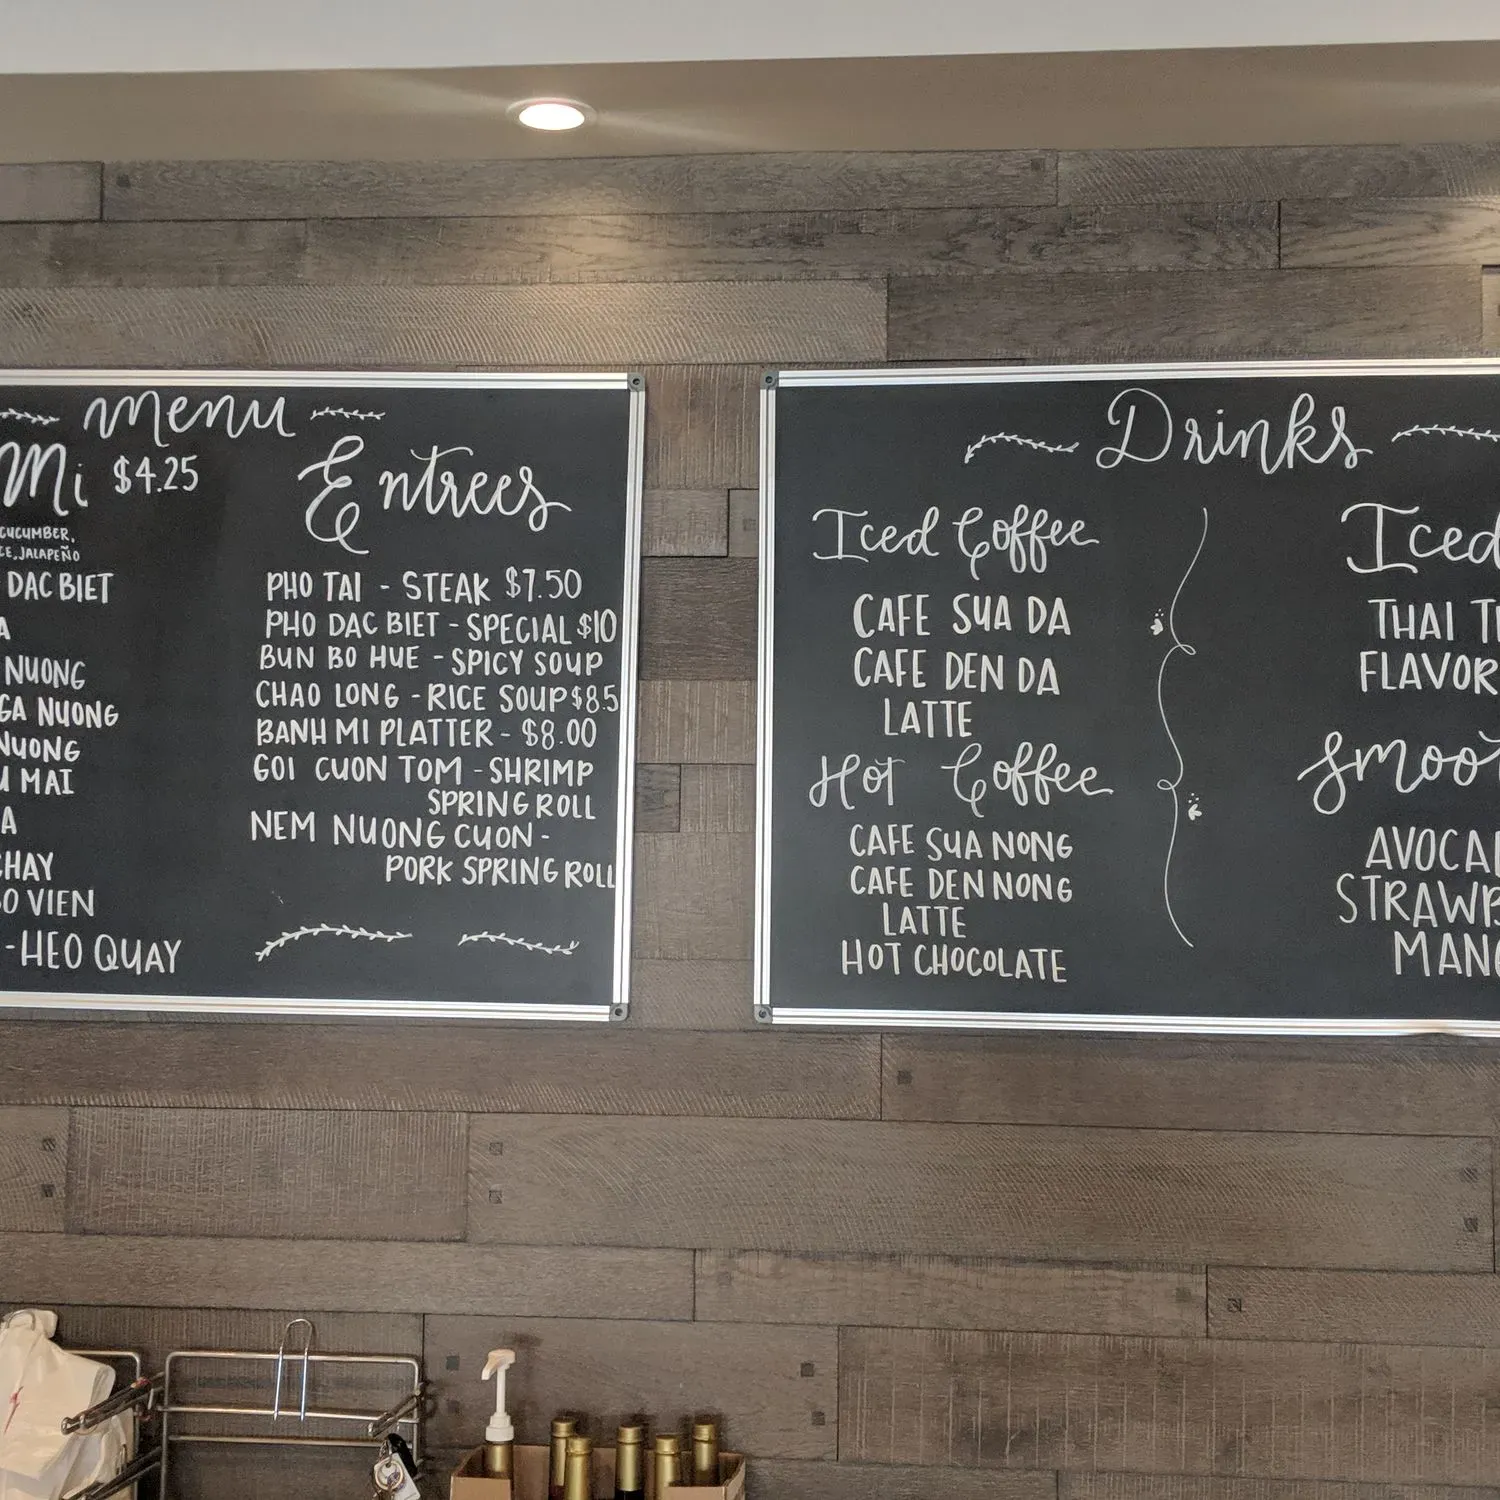 Menu
Mi $4.25
CUCUMBER,
JALAPEÑO
DAC BIET
NUONG
GA NUONG
NUONG
MAI
CHAY
BO VIEN
-HEO QUAY
Entrees
PHO TAI - STEAK $7.50
PHO DAC BIET - SPECIAL $10
BUN BO HUE - SPICY SOUP
CHAO LONG - RICE SOUP $8.5
BANH MI PLATTER - $8.00
GOI CUON TOM - SHRIMP
SPRING ROLL
NEM NUONG CUON -
PORK SPRING ROLL
Drinks
Iced Coffee
CAFE SUA DA
CAFE DEN DA
LATTE
Hot Coffee
CAFE SUA NONG
CAFE DEN NONG
LATTE
HOT CHOCOLATE
Iced
THAI T
FLAVOR
Smoot
AVOCA
STRAWB
MANG